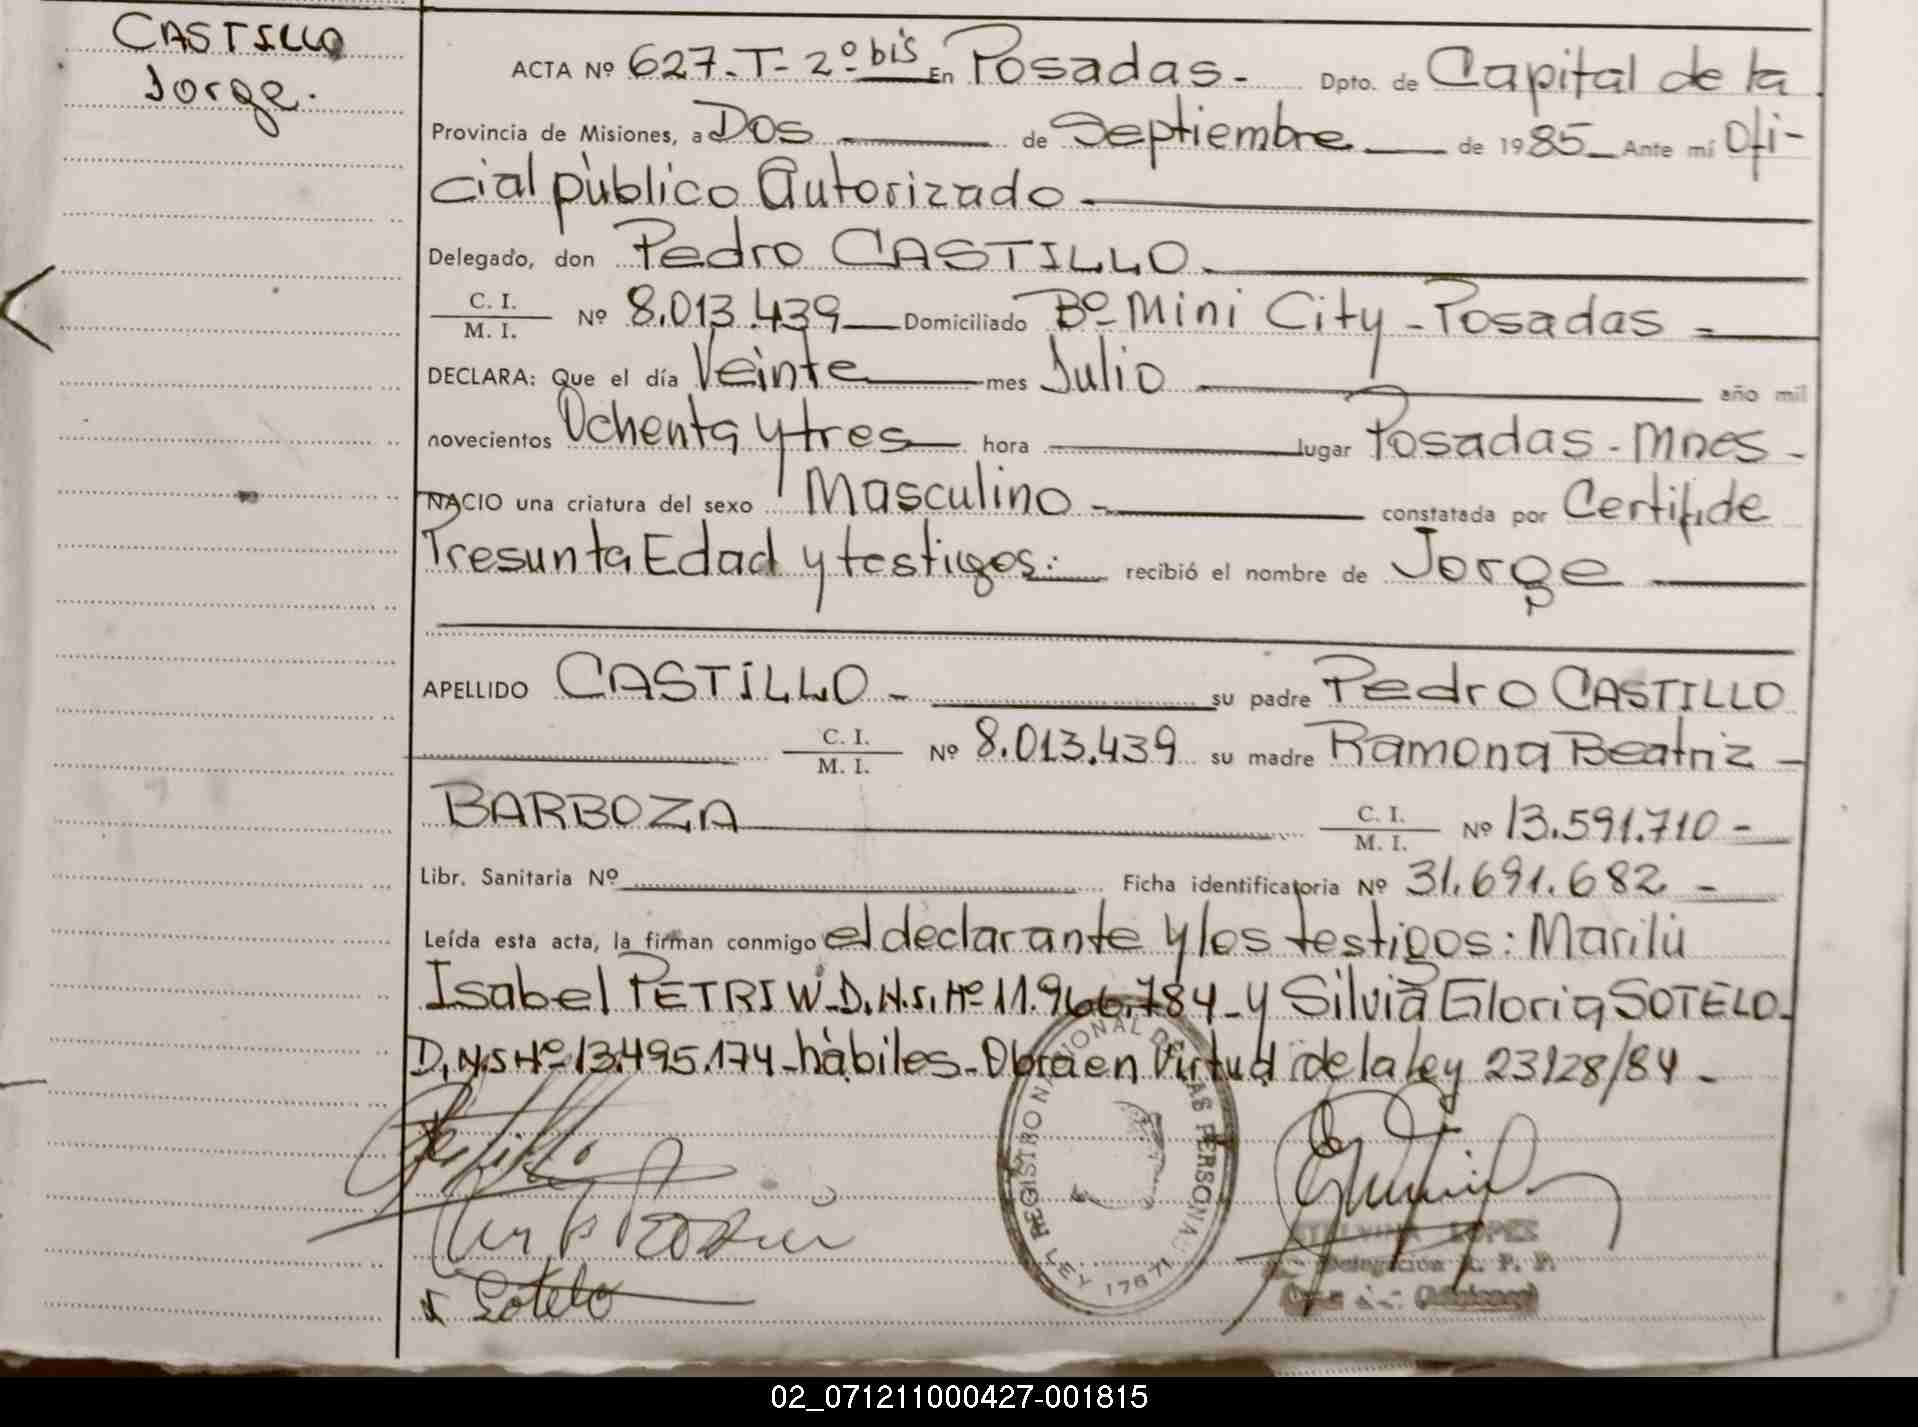 CASTILLO
Jorge.
ACTA Nº 627-T-2º bis En Posadas- Dpto. de Capital de la
Provincia de Misiones, a Dos de Septiembre de 1985 Ante mí Ofi-
cial público Autorizado
Delegado, don Pedro CASTILLO
C. I.
M. I. Nº 8.013.439 Domiciliado Bº Mini City - Posadas -
DECLARA: Que el día Veinte mes Julio año mil
novecientos Ochenta y tres hora lugar Posadas - Mnes -
NACIO una criatura del sexo Masculino - constatada por Certif. de
Presunta Edad y testigos: recibió el nombre de Jorge
APELLIDO CASTILLO - su padre Pedro CASTILLO
C. I.
M. I. Nº 8.013.439 su madre Ramona Beatriz -
BARBOZA C. I.
M. I. Nº 13.591.710 -
Libr. Sanitaria Nº Ficha identificatoria Nº 31.691.682 -
Leída esta acta, la firman conmigo el declarante y los testigos: Marilú
Isabel PETRIW - D.N.I. Nº 11.966.784 - y Silvia Gloria SOTELO -
D.N.I Nº 13.495.174 - hábiles - Obra en Virtud de la ley 23128/84 -
REGISTRO NACIONAL DE LAS PERSONAS
LEY 17671
Castillo
Sotelo
LOPEZ
Delegación R. P. P.
(Misiones)
02_071211000427-001815